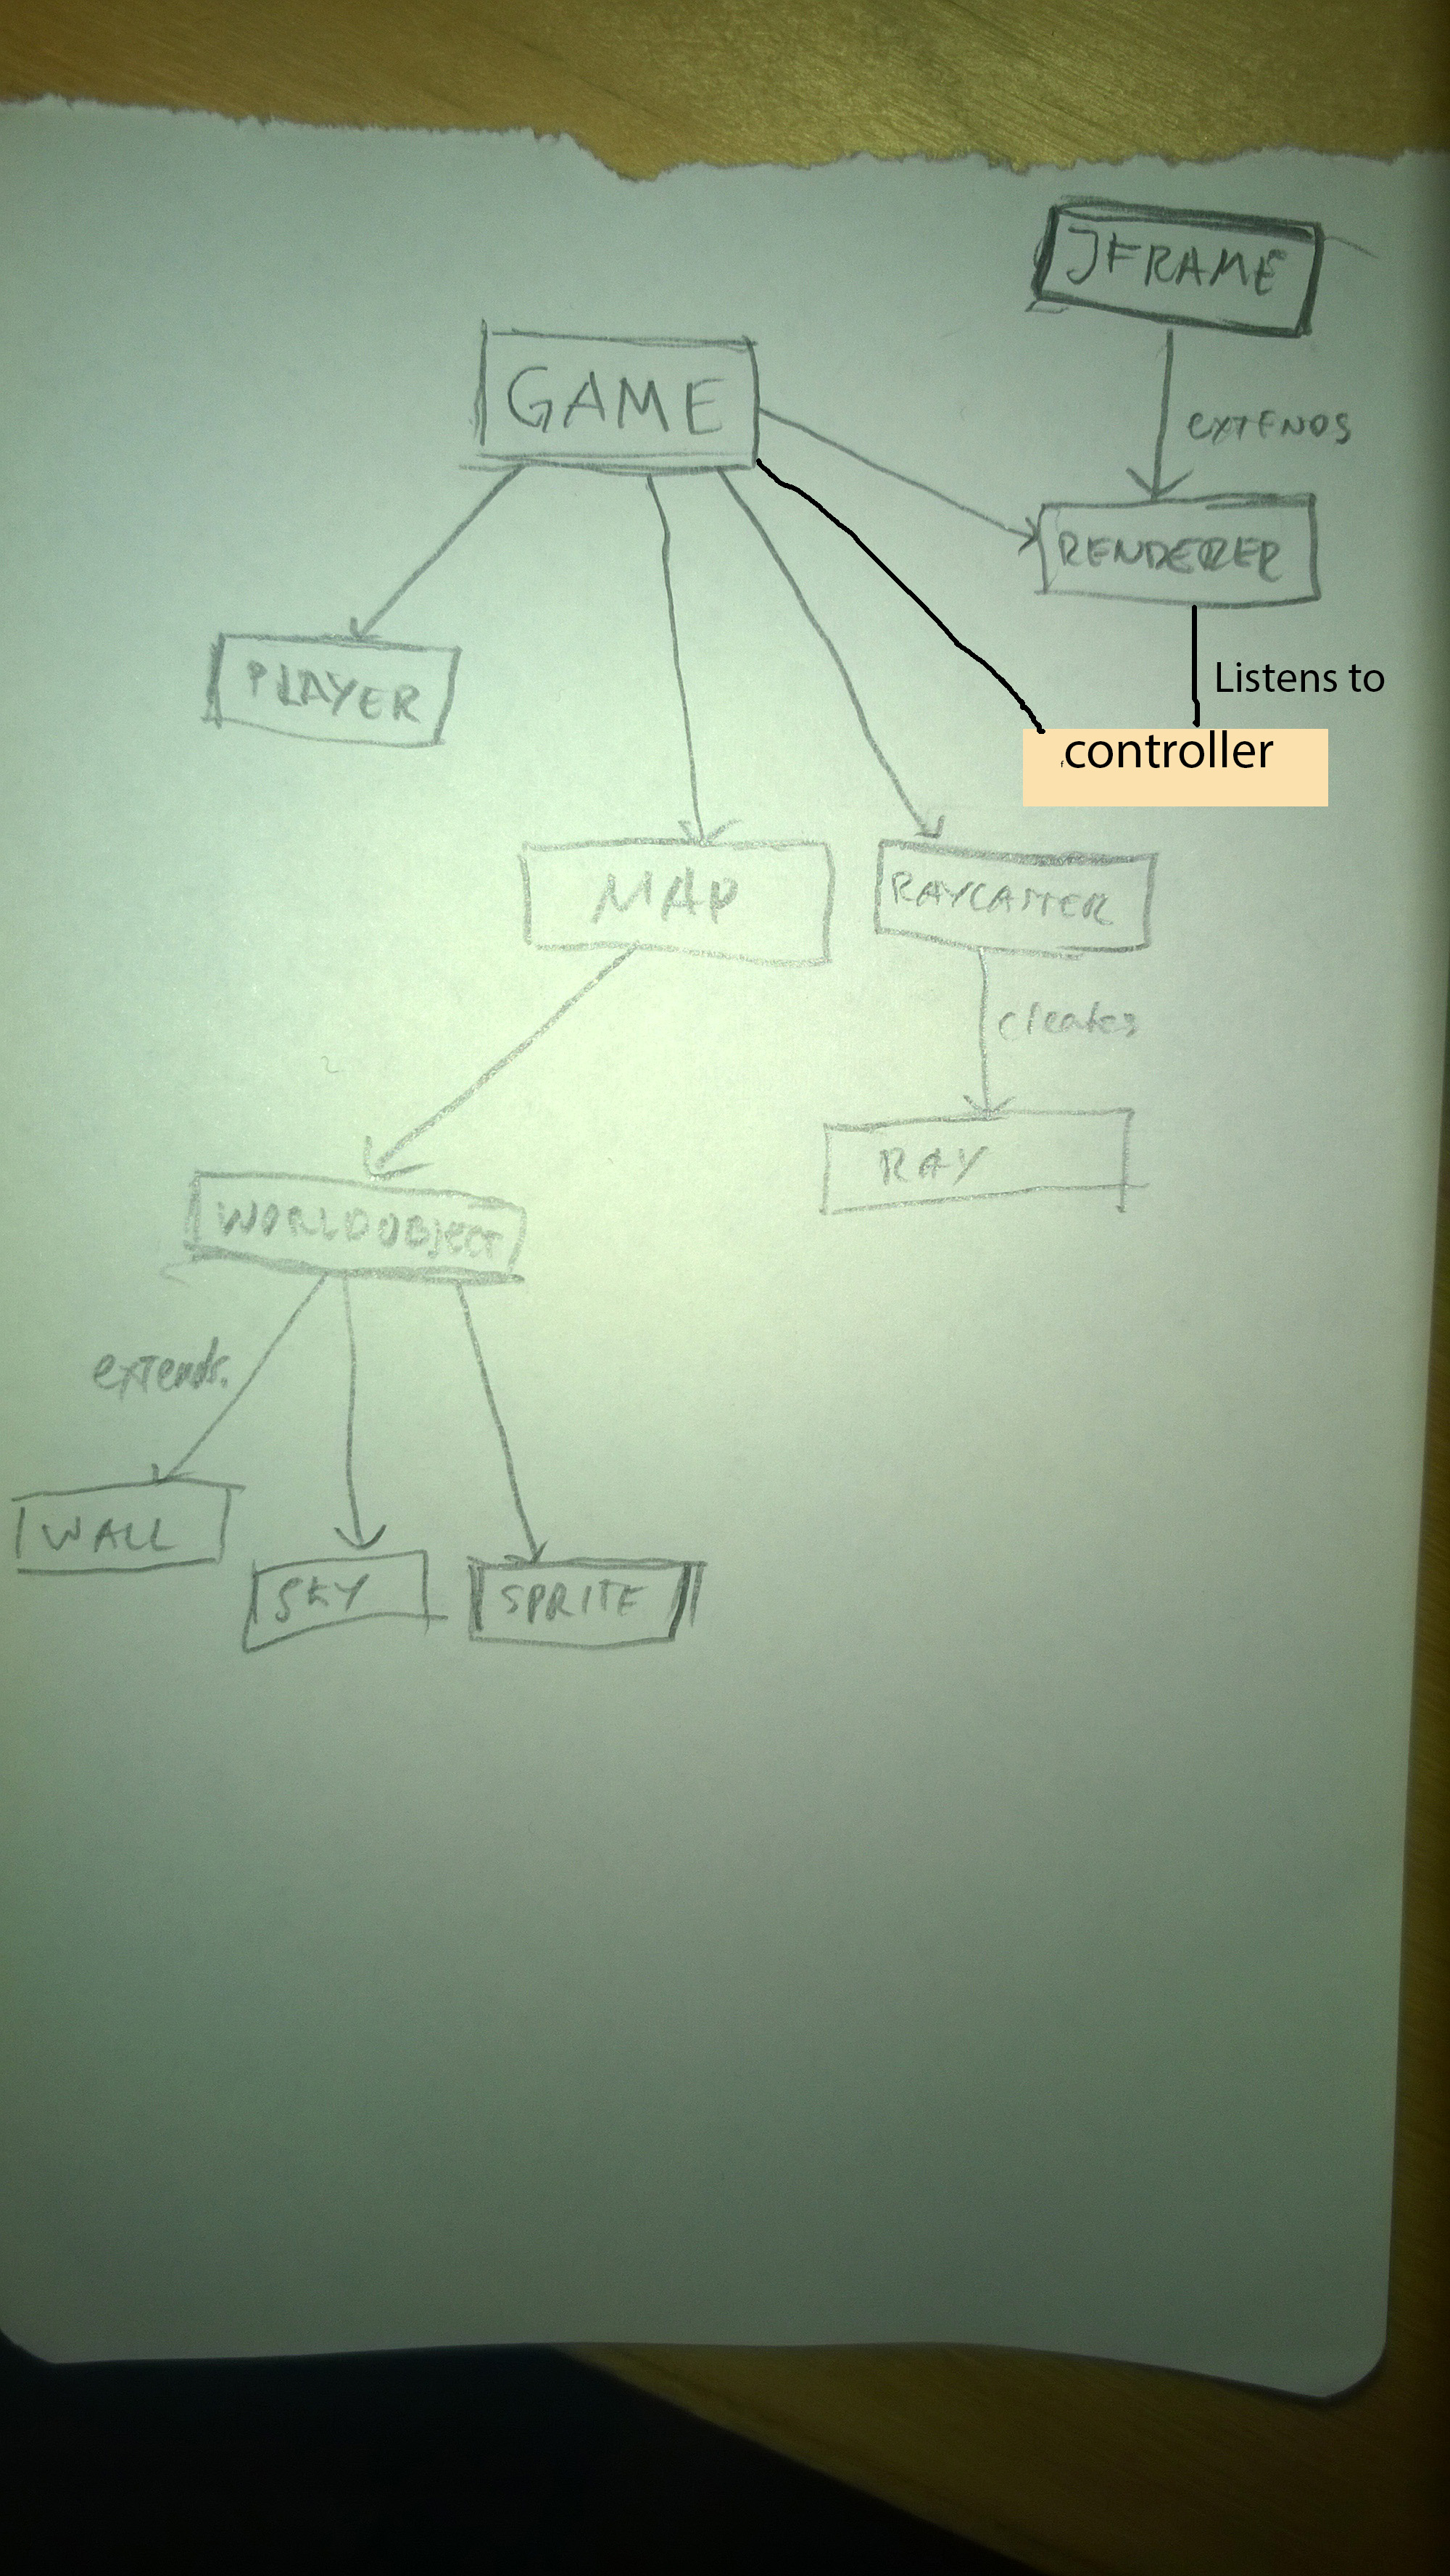 JFRAME
GAME
EXTENDS
RENDERER
PLAYER
Listens to
controller
MAP
RAYCASTER
creates
RAY
WORLDOBJECT
extends.
WALL
SKY
SPRITE